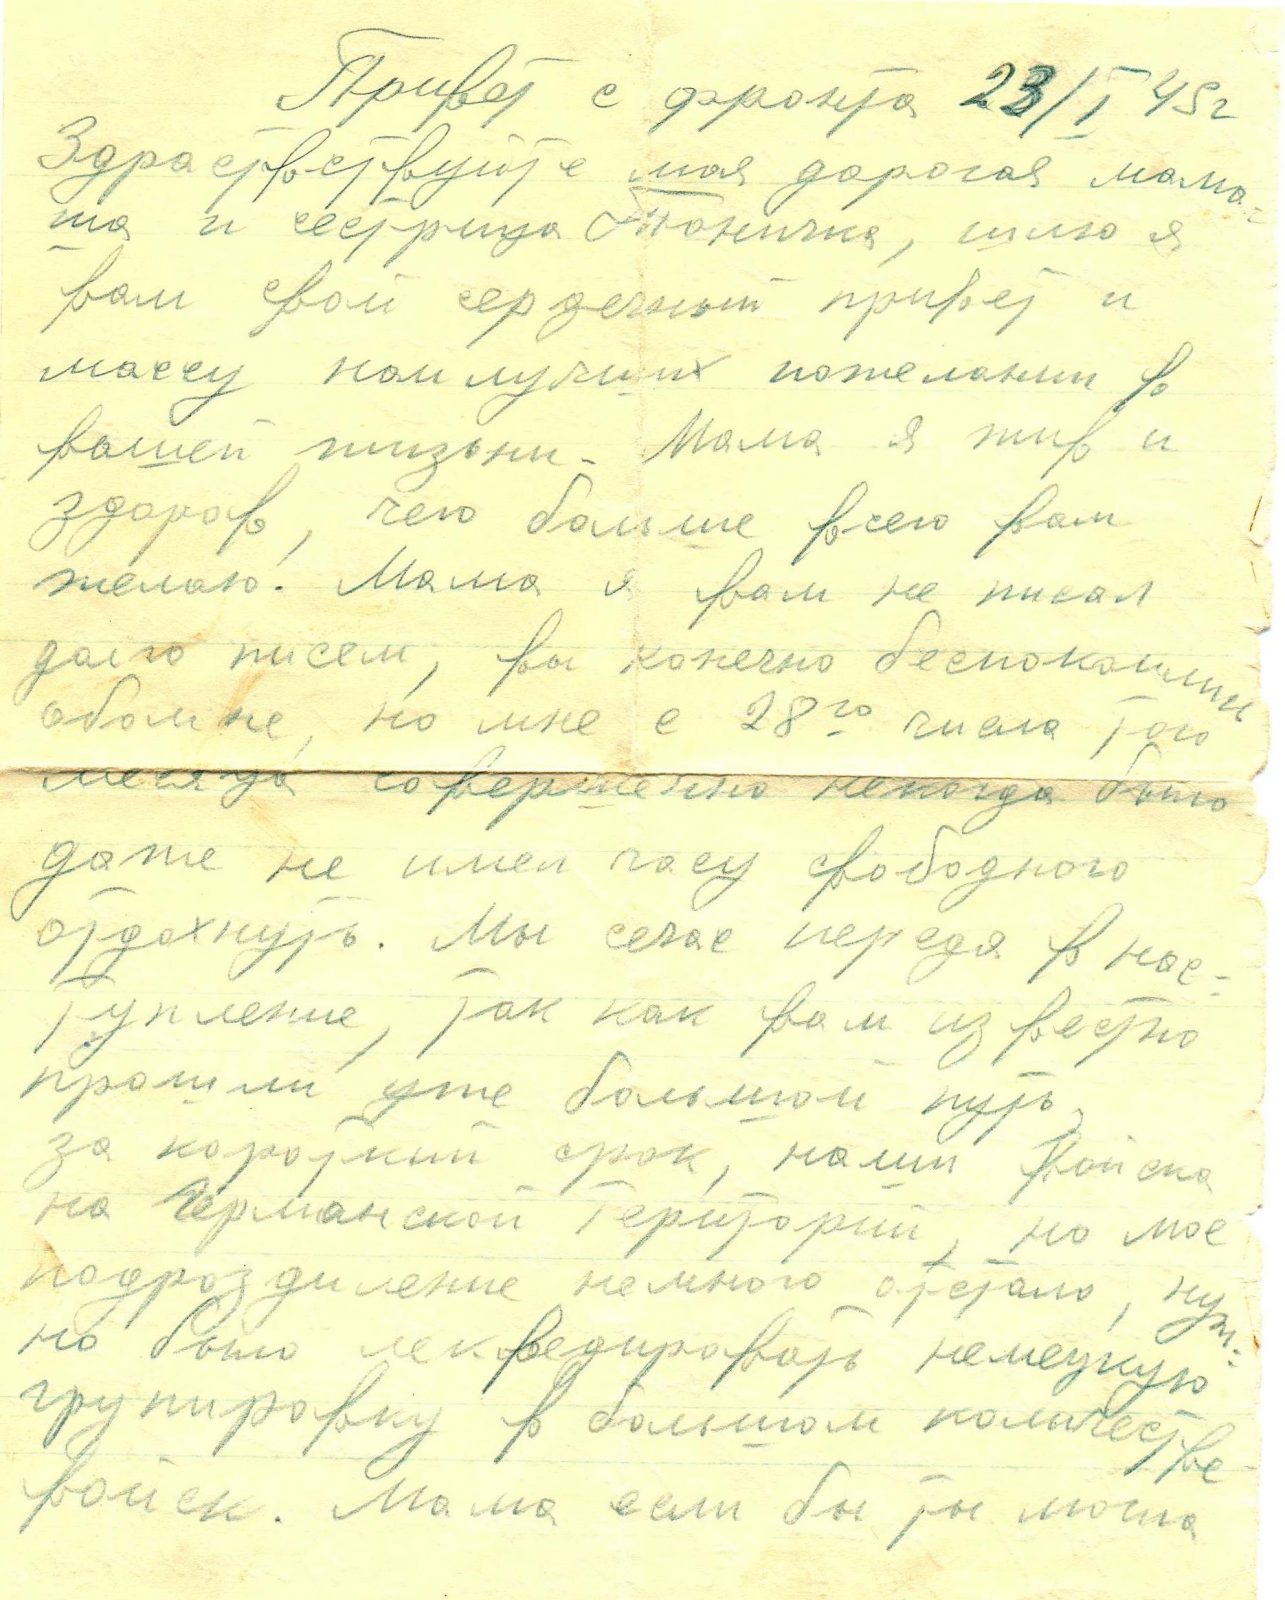 Привет с фронта 23/I 45г
Здраствствуйте моя дорогая мама-
ша и сестрица Тоничка, шлю я
вам свой сердечный привет и
массу наилучших пожелании в
вашей жизьни. Мама я жив и
здоров, чего больше всего вам
желаю. Мама я вам не писал
долго писем, вы конечно беспокоились
обомне, но мне с 28го числа того
месяца совершенно некогда было
даже не имел часу свободного
отдохнуть. Мы сечас переdя в нас-
тупление, так как вам известно
прошли уже большой путь,
за короткий срок, наши войска
на Германской Территорий, но мое
подрозделение немного отстало, нуж-
но было лекведировать немецкую
групировку в большом количестве
войск. Мама если бы ты могла